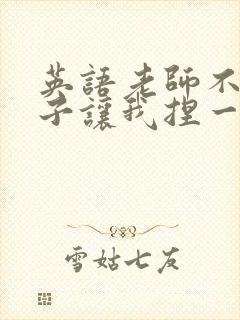 英語老師不
子讓我捏一
雪姑七友